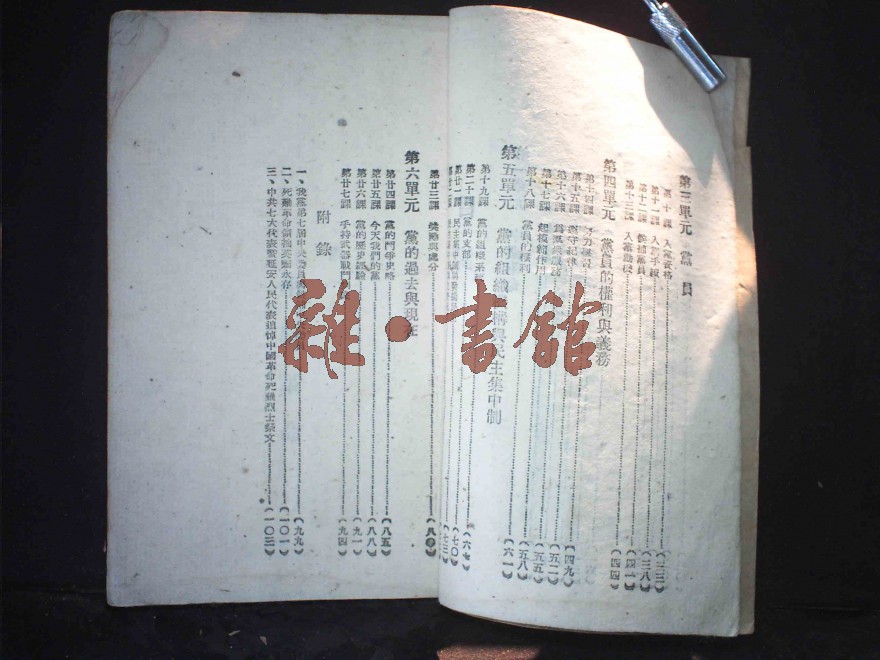 第三單元 黨員
第十課 入黨資格
第十一課 入黨手續 (三三)
第十二課 候補黨員 (三八)
第十三課 入黨 (四一)
第四單元 黨員的權利與義務 (四四)
第十四課 努力
第十五課 遵守紀律 (四九)
第十六課 (五二)
第十七課 起模範作用 (五五)
第十八課 黨員的權利 (五八)
第五單元 黨的組織 與民主集中制 (六一)
第十九課 黨的組織系
第二十課 黨的支部 (六七)
第廿一課 民主集中 (七〇)
(七三)
第廿三課 獎勵與處分 (八〇)
第六單元 黨的過去與現在
第廿四課 黨的鬥爭史略 (八五)
第廿五課 今天我們的黨 (八八)
第廿六課 黨的歷史經驗 (九一)
第廿七課 手持武器戰鬥 (九四)
附錄
一、我黨第七屆中央委員 (九九)
二、死難革命領袖英 永存 (一〇一)
三、中共七大代表暨延安人民代表追悼中國革命死難烈士祭文 (一〇三)
雜·書館